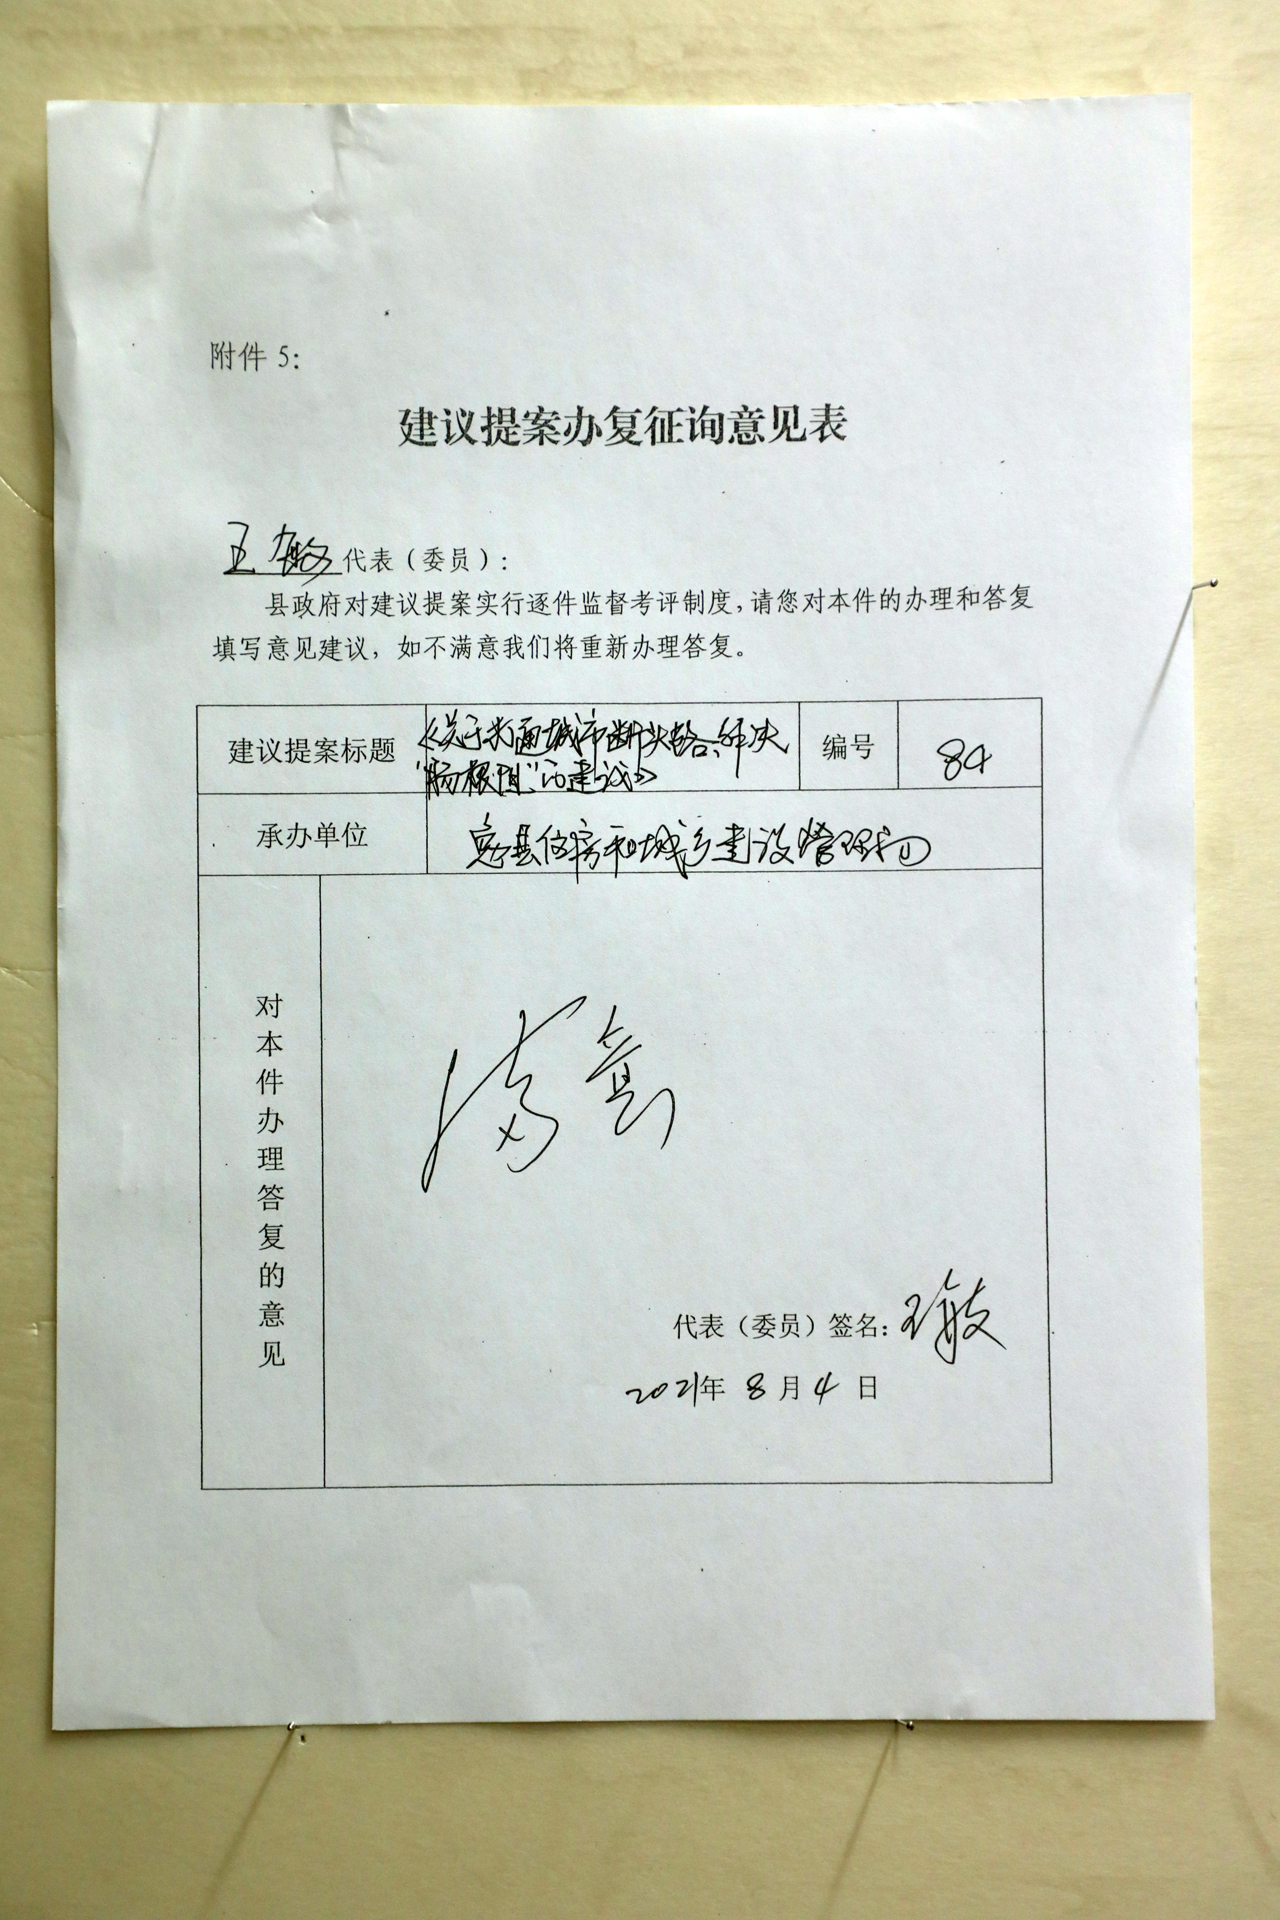 附件 5：
建议提案办复征询意见表
王敏 代表（委员）：
县政府对建议提案实行逐件监督考评制度，请您对本件的办理和答复
填写意见建议，如不满意我们将重新办理答复。
建议提案标题
《关于打通城市断头路、解决
“肠梗阻”的建议》
编号
84
承办单位
县住房和城乡建设管理局
对本件办理答复的意见
满意
代表（委员）签名：王敏
2021年 8 月 4 日